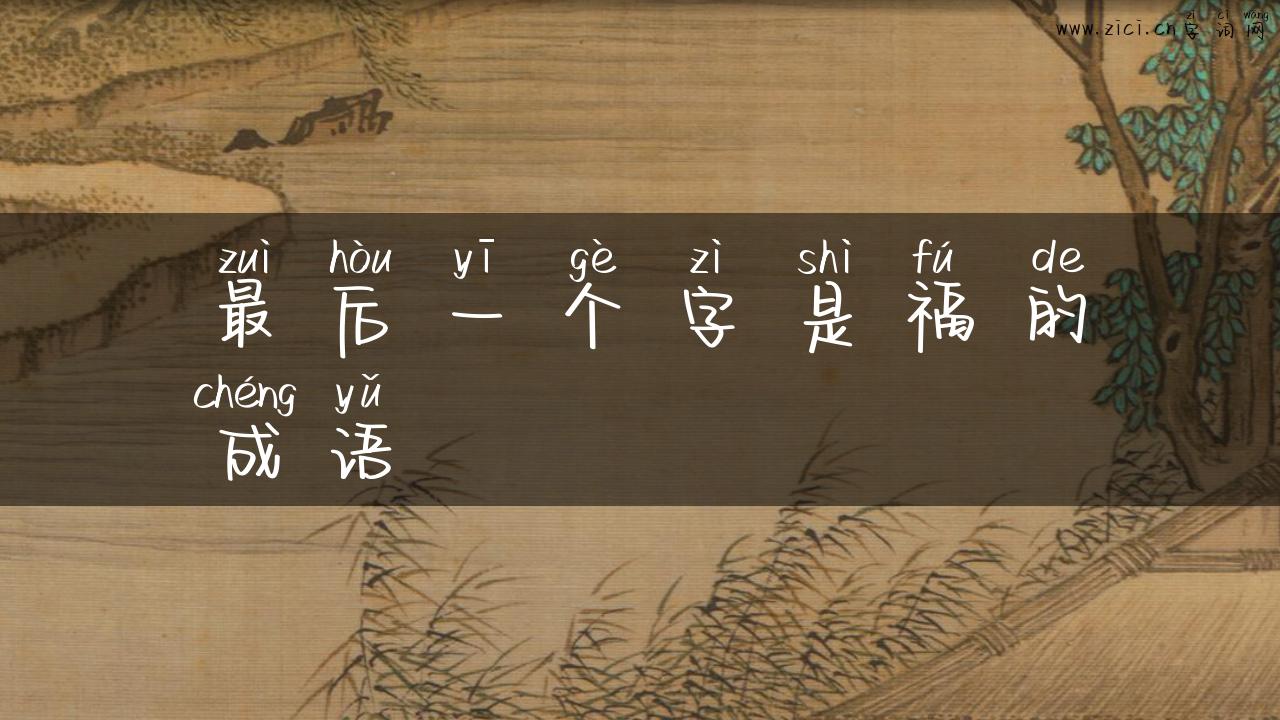 zì cí wǎng
www.zici.cn 字 词 网
zuì hòu yī gè zì shì fú de
最 后 一 个 字 是 福 的
chéng yǔ
成 语